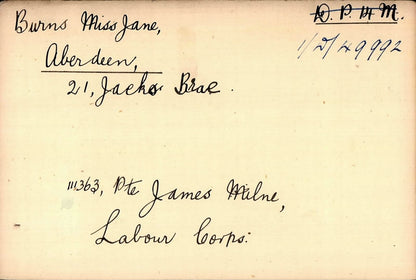 Burns Miss Jane,
D. P. 14 M.
1/D/49992
Aberdeen,
21, Jacks Brae.
111363, Pte James Milne,
Labour Corps: